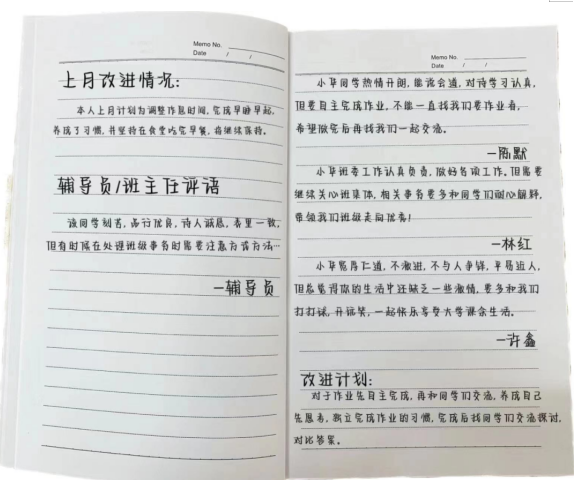 Memo No.
Date / /
上月改进情况:
本人上月计划为调整作息时间, 完成早睡早起,
养成了习惯, 并坚持在食堂吃完早餐, 将继续保持。
辅导员/班主任评语
该同学刻苦, 品行优良, 待人诚恳, 表里一致,
但有时候在处理班级事务时需要注意方式方法…
—辅导员
Memo No.
Date / /
小华同学热情开朗, 能说会道, 对待学习认真,
但要自主完成作业, 不能一直找我们要作业看,
希望做完后再找我们一起交流。
—陈默
小华班委工作认真负责, 做好各项工作。但需要
继续关心班集体, 相关事务要多和同学们耐心解释,
带领我们班级走向优秀!
—林红
小华宽厚仁道, 不激进, 不与人争锋, 平易近人,
但总觉得你的生活中还缺乏一些激情, 要多和我们
打打球, 开玩笑, 一起快乐享受大学课余生活。
—许鑫
改进计划:
对于作业先自主完成, 再和同学们交流, 养成自己
先思考, 独立完成作业的习惯, 完成后找同学们交流探讨,
对比答案。